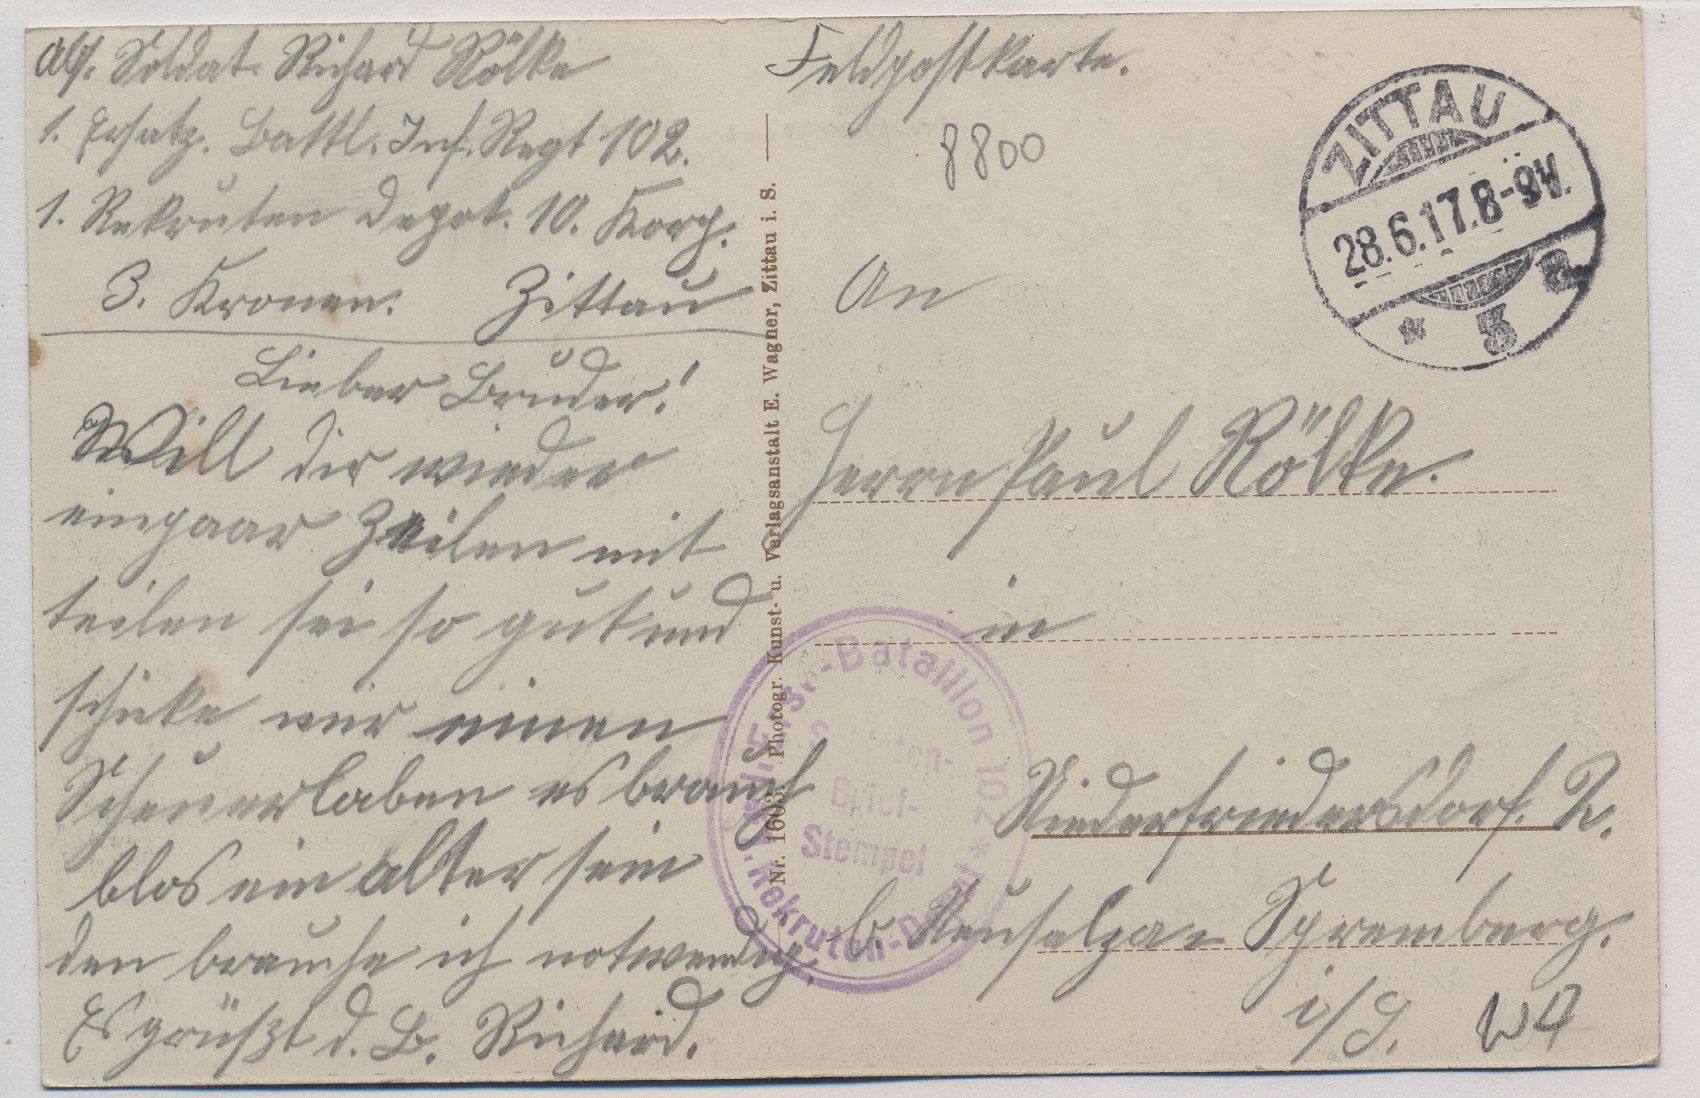 Abs. Soldat. Richard Rölke
1. Ersatz. Battl. Inf. Regt 102.
1. Rekruten Depot. 10. Korp.
3. Kronen. Zittau
Lieber Bruder!
Will dir wieder
einpaar Zeilen mit
teilen sei so gut und
schicke mir einen
Scheuerlaben es brauch
blos ein alter sein
den brauche ich notwendig.
Es grüßt d. B. Richard.
Nr. 1603. Photogr. Kunst- u. Verlagsanstalt E. Wagner, Zittau i. S.
Feldpostkarte.
8800
ZITTAU
28.6.17.8-9V.
* 3 a
An
Herrn Paul Rölke.
in
Niederfriedersdorf. N.
b. Neusalza = Spremberg.
i/S.
Ers.-Bataillon 102 *
Soldaten-
Brief-
Stempel
Rekruten-Depot